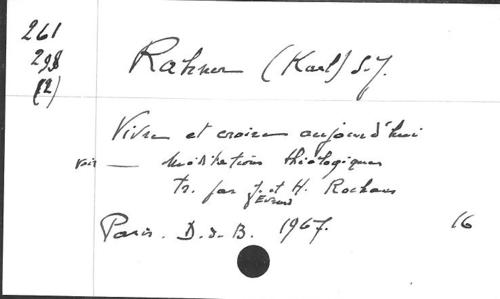 261
298
(2)
Rahner (Karl) S.J.
Vivre et croire aujourd'hui
voir — Méditations théologiques
tr. par J. et H. Rochais
Evrard
Paris. D.d.B. 1967. 16